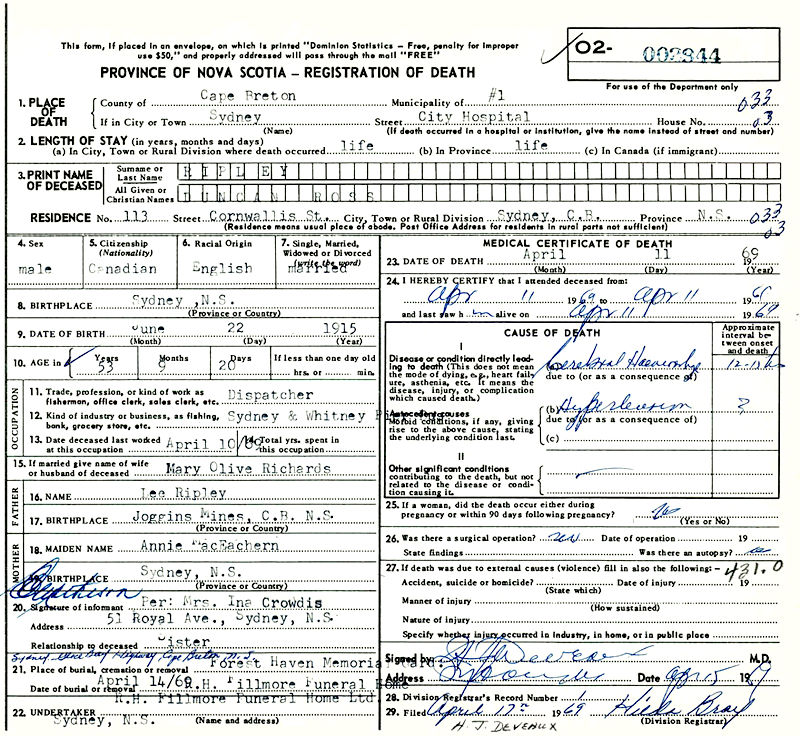 This form, if placed in an envelope, on which is printed "Dominion Statistics - Free, penalty for improper
use $50," and properly addressed will pass through the mail "FREE"
O2- 002844
For use of the Department only
PROVINCE OF NOVA SCOTIA - REGISTRATION OF DEATH
1. PLACE OF DEATH County of Cape Breton Municipality of #1 033
If in City or Town Sydney Street City Hospital House No. 03
(Name) (If death occurred in a hospital or institution, give the name instead of street and number)
2. LENGTH OF STAY (in years, months and days)
(a) In City, Town or Rural Division where death occurred life (b) In Province life (c) In Canada (if immigrant)
3. PRINT NAME OF DECEASED Surname or Last Name RIPLEY
All Given or Christian Names DUNCAN ROSS
RESIDENCE No. 113 Street Cornwallis St. City, Town or Rural Division Sydney, C.B. Province N.S. 033
(Residence means usual place of abode. Post Office Address for residents in rural parts not sufficient) 03
4. Sex male
5. Citizenship (Nationality) Canadian
6. Racial Origin English
7. Single, Married, Widowed or Divorced (write the word) married
8. BIRTHPLACE Sydney ,N.S.
(Province or Country)
9. DATE OF BIRTH June 22 1915
(Month) (Day) (Year)
10. AGE in Years 53 Months 9 Days 20 If less than one day old hrs. or min.
OCCUPATION
11. Trade, profession, or kind of work as fishermon, office clerk, sales clerk, etc. Dispatcher
12. Kind of industry or business, as fishing, bank, grocery store, etc. Sydney & Whitney Pier
13. Date deceased last worked at this occupation April 10/69 14. Total yrs. spent in this occupation
15. If married give name of wife or husband of deceased Mary Olive Richards
FATHER
16. NAME Lee Ripley
17. BIRTHPLACE Joggins Mines, C.B. N.S.
(Province or Country)
MOTHER
18. MAIDEN NAME Annie MacEachern
19. BIRTHPLACE Sydney, N.S.
(Province or Country)
20. Signature of informant Per: Mrs. Ina Crowdis
Address 51 Royal Ave., Sydney, N.S.
Relationship to deceased Sister
Sydney Glace Bay Highway Cape Breton N.S.
21. Place of burial, cremation or removal Forest Haven Memorial Gard.
Date of burial or removal April 14/69 R.H. Fillmore Funeral Home
R.H. Fillmore Funeral Home Ltd.
22. UNDERTAKER Sydney, N.S.
(Name and address)
MEDICAL CERTIFICATE OF DEATH
23. DATE OF DEATH April 11 1969
(Month) (Day) (Year)
24. I HEREBY CERTIFY that I attended deceased from:
Apr 11 1969 to Apr 11 1969
and last saw him alive on Apr 11 1969
CAUSE OF DEATH
Approximate interval between onset and death
I
Disease or condition directly leading to death (This does not mean the mode of dying, e.g., heart failure, asthenia, etc. It means the disease, injury, or complication which caused death.)
Cerebral Haemorrhage
due to (or as a consequence of)
Antecedent causes
Morbid conditions, if any, giving rise to the above cause, stating the underlying condition last.
(b) Hypertension ?
due to (or as a consequence of)
(c)
II
Other significant conditions contributing to the death, but not related to the disease or condition causing it.
25. If a woman, did the death occur either during pregnancy or within 90 days following pregnancy?
(Yes or No)
26. Was there a surgical operation? Date of operation 19
State findings Was there an autopsy?
27. If death was due to external causes (violence) fill in also the following: - 431.0
Accident, suicide or homicide? Date of injury 19
(State which)
Manner of injury
(How sustained)
Nature of injury
Specify whether injury occurred in industry, in home, or in public place
Signed by M.D.
Address Date Apr 15 19
28. Division Registrar's Record Number 1
29. Filed April 17th 1969 Hilda Bray
(Division Registrar)
H. J. DEVEAUX